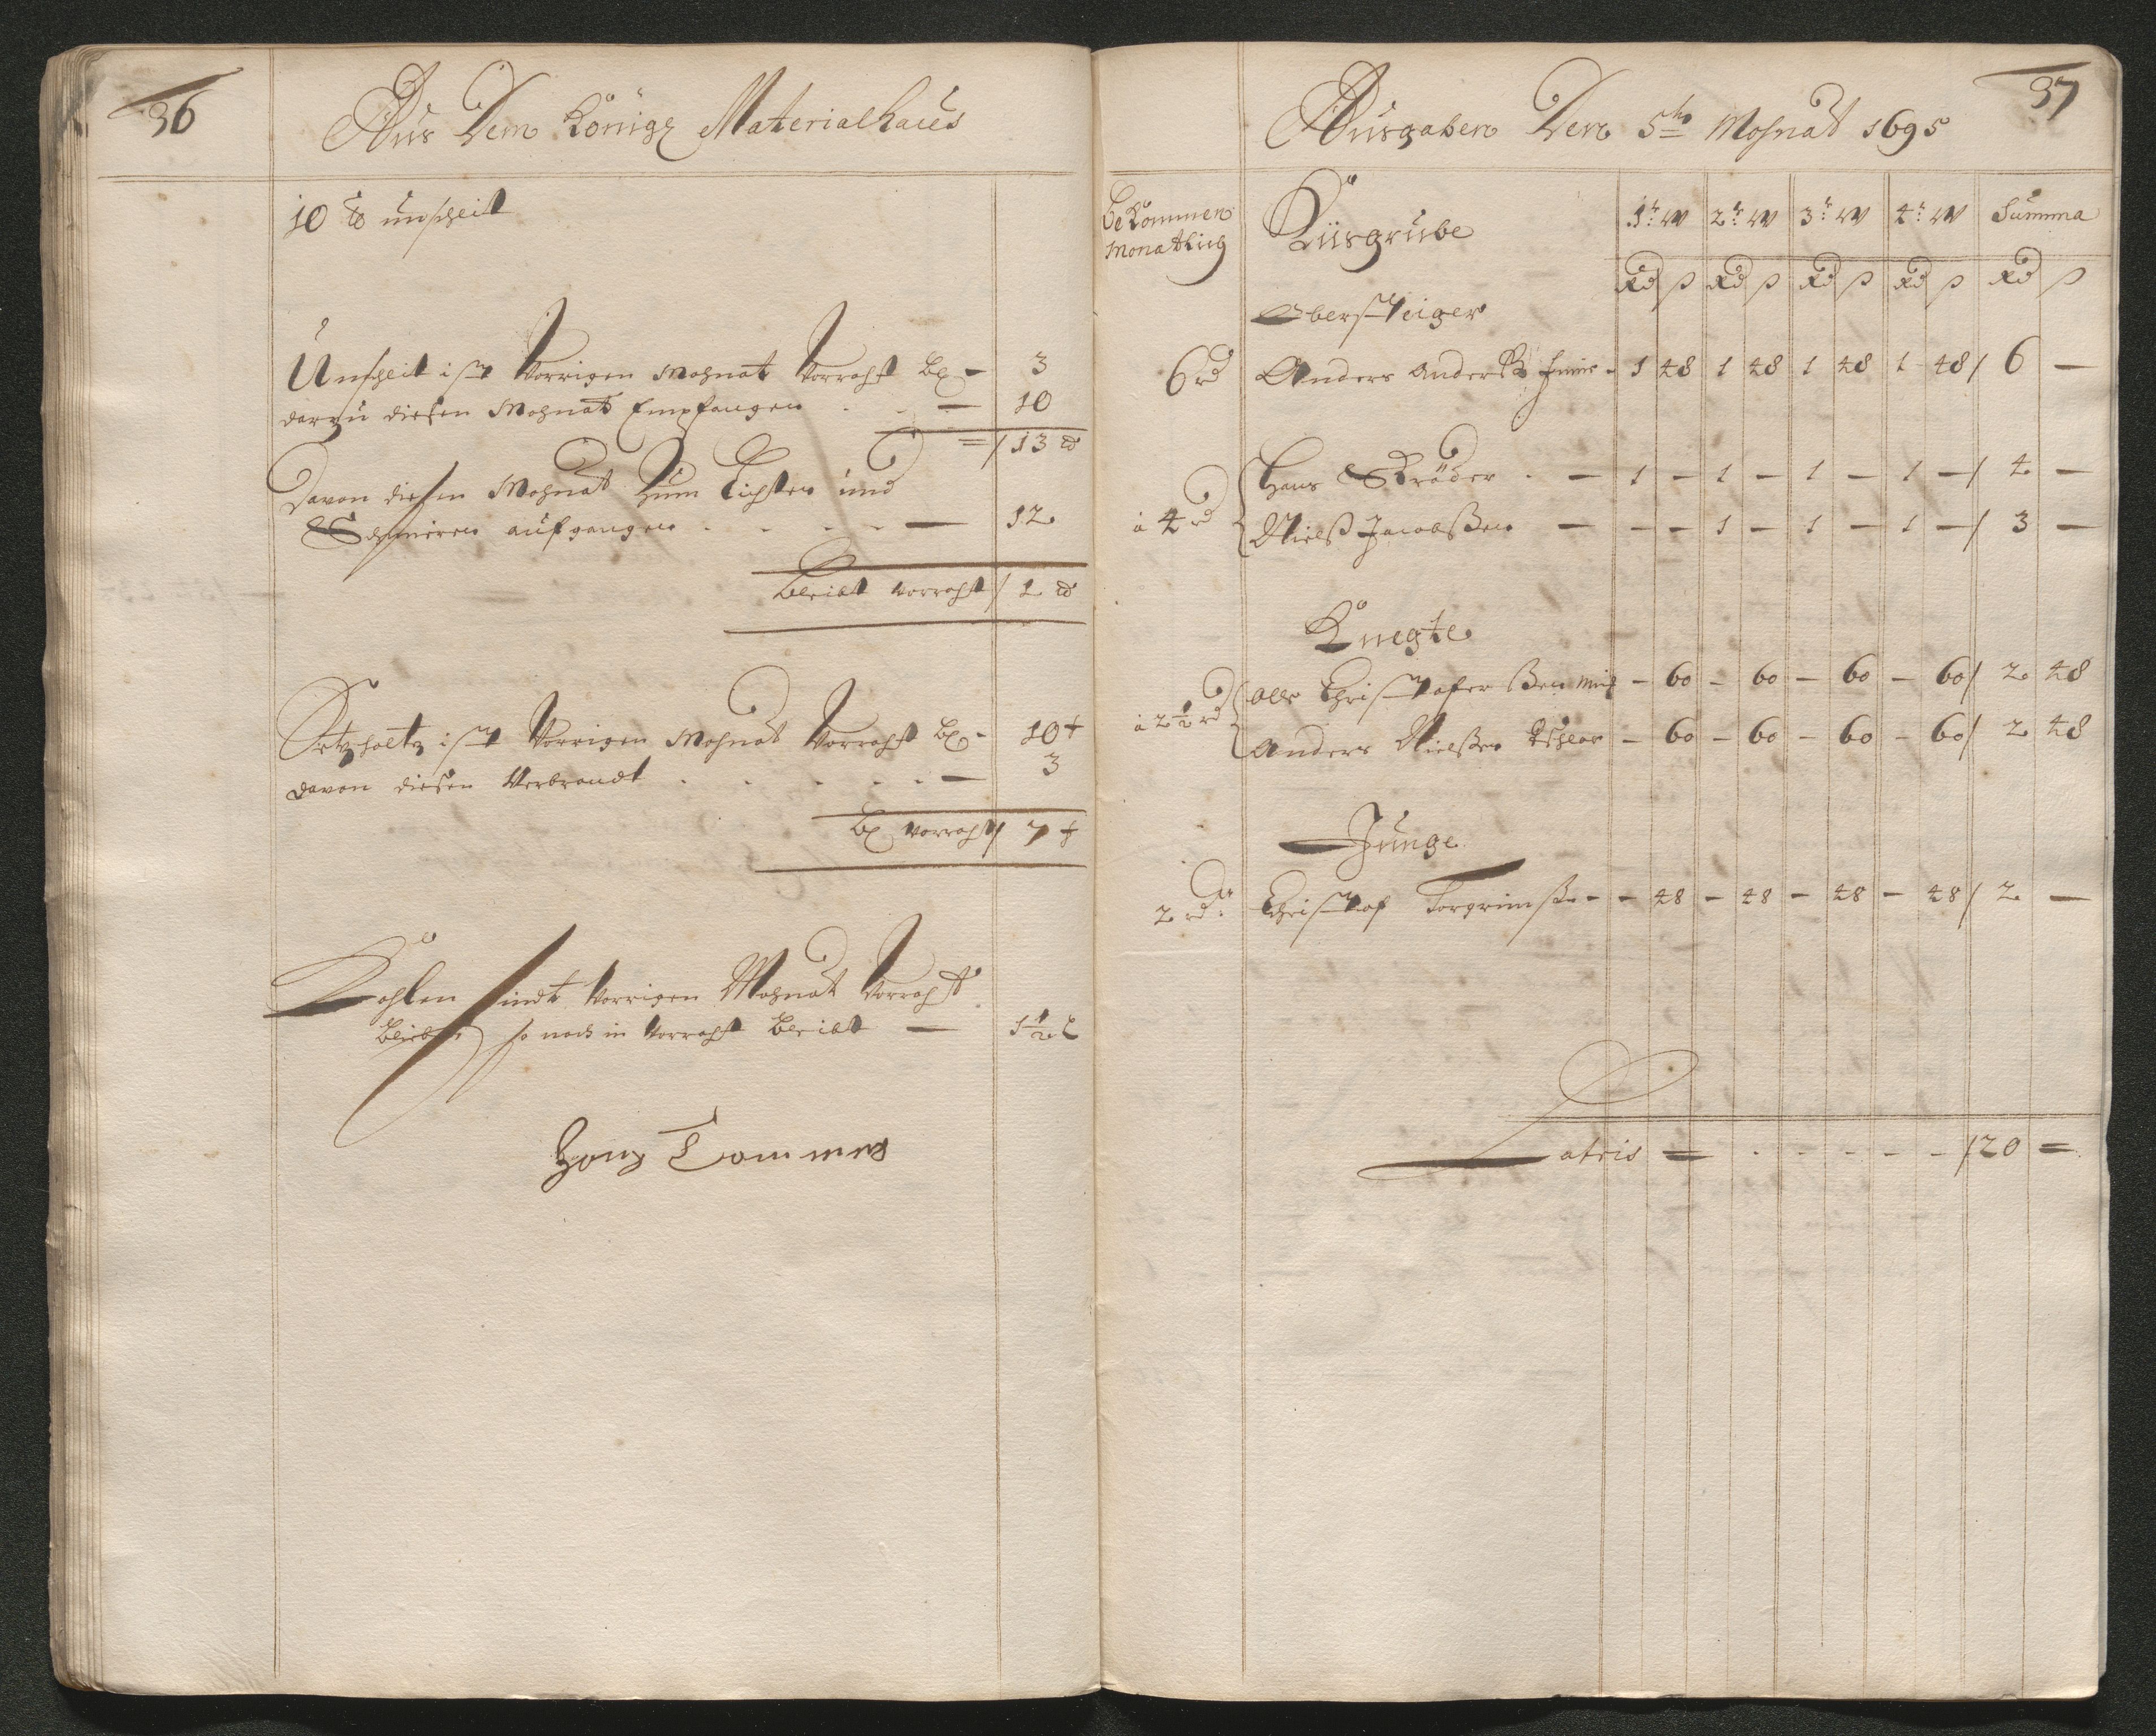 36
Aus Dem Königl Materialhaus
10 ℔ unscheit
Unscheit ist Vorrigen Mohnat Vorraht bl – 3
darzu diesen Mohnat Empfangen . . — 10
= / 13 ℔
Davon diesen Mohnat Zum Lichten und
Schmieren aufgangen . . . . — 12
Bleibt vorraht / 1 ℔
Setzholtz ist Vorrigen Mohnat Vorraht bl – 10 f
davon diesen Verbrandt . . . . . — 3
bl vorraht / 7 f
Kohlen sindt Vorrigen Mohnat Vorraht
blieben so noch in Vorraht Bleibt — 1½ L
37
Ausgaben Den 5ten Mohnat 1695
bekommen
Monatlich
Kiisgrube
1te W 2te W 3te W 4te W Summa
Rd ß Rd ß Rd ß Rd ß Rd ß
Obersteiger
6 rd Anders Anderß – 1 48 1 48 1 48 1 48 / 6 —
à 4 rd Hans Ströder . — 1 – 1 – 1 – 1 – / 4 —
Nielß Jacobßen — – – 1 – 1 – 1 – / 3 —
Knegte
à 2½ rd Olle Christofer ßen – 60 – 60 – 60 – 60 / 2 48
Anders Nielßen – 60 – 60 – 60 – 60 / 2 48
Junge
2 rd Christof Torgrimß – – 48 – 48 – 48 – 48 / 2 —
Latris = . . . . – – / 20 =